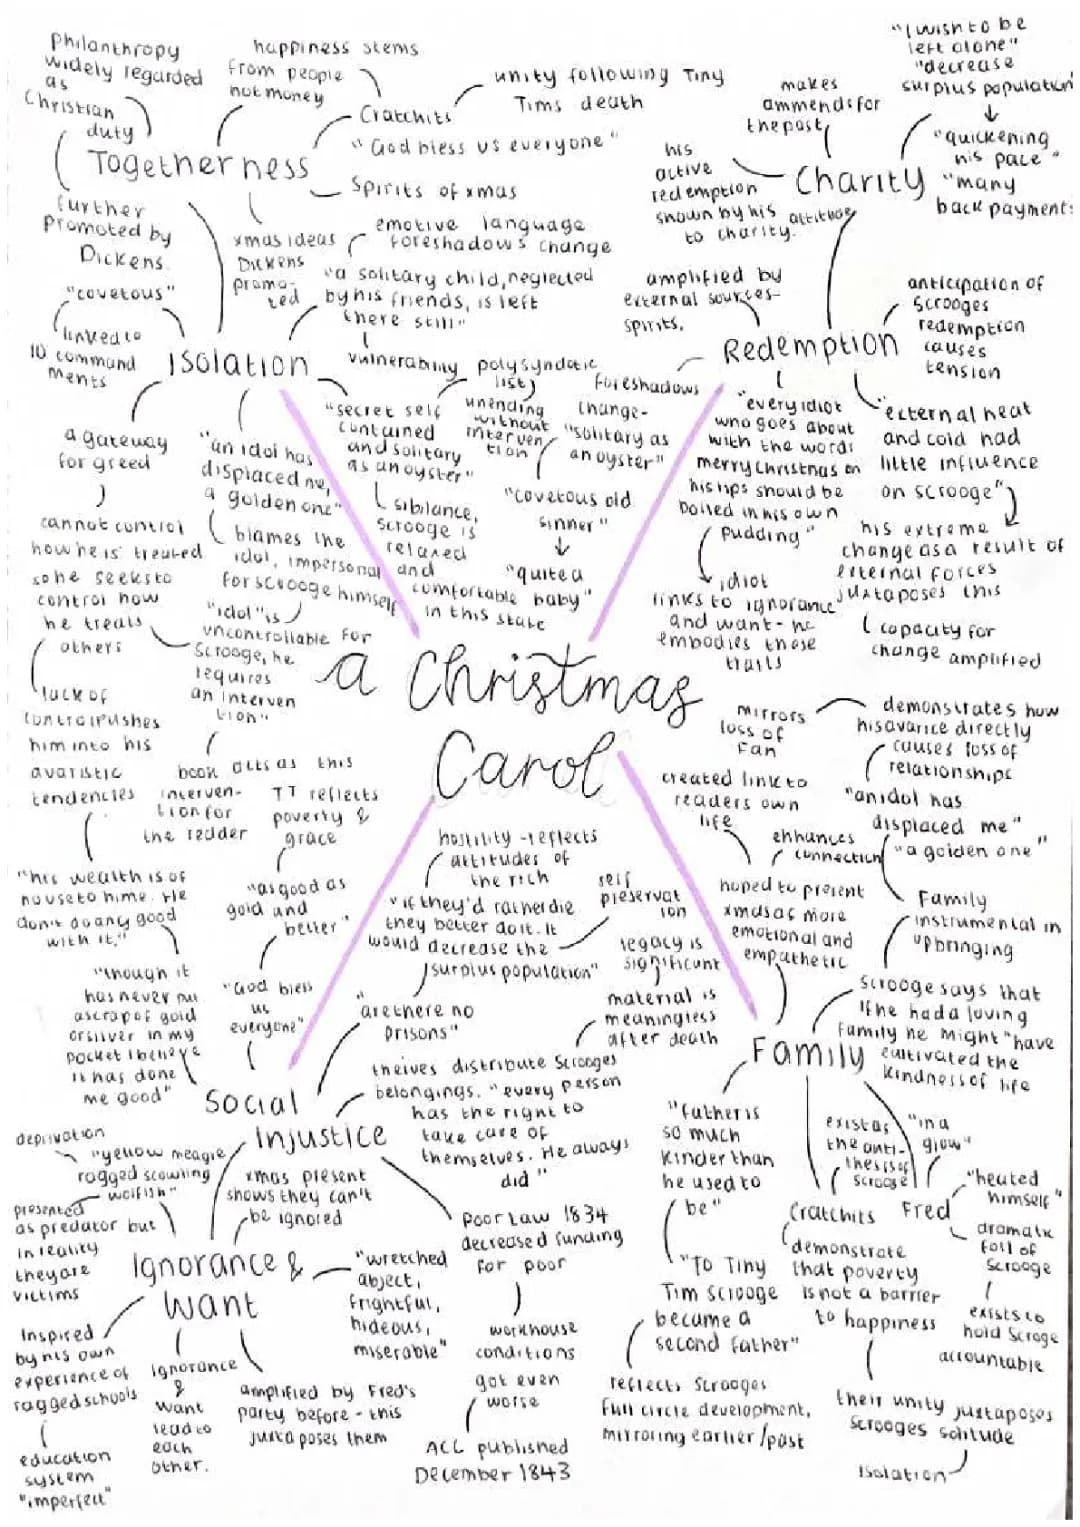 Philanthropy
widely regarded
as
Christian
duty
Togetherness
further
promoted by
Dickens.
happiness stems
from people
not money
Cratchits
unity following Tiny
Tims death
"God bless us everyone"
Spirits of xmas
xmas ideas
Dickens
promo-
ted
"I wish to be
left alone"
"decrease
surplus population"
"quickening
his pace"
"many
back payments
makes
ammends for
the past
his
active
redemption
shown by his attitude
to charity.
Charity
emotive language
foreshadows change
"a solitary child, neglected
by his friends, is left
there still"
vulnerability
"covetous"
linked to
10 command
ments
Isolation
a gateway
for greed
cannot control
how he is treated
so he seeks to
control how
he treats
others
lack of
control pushes
him into his
avaristic
tendencies
"an idol has
displaced me,
a golden one"
blames the
idol, impersonal
for scrooge himself
"idol" is
uncontrollable for
Scrooge, he
requires
an interven
tion"
book acts as this
interven-
tion for
the reader
"secret self
contained
and solitary
as an oyster"
sibilance,
scrooge is
relaxed
and
comfortable
in this state
polysyndotic
list)
unending
without
interven
tion
foreshadows
change-
"solitary as
an oyster"
"covetous old
sinner"
"quite a
baby"
amplified by
external sources-
spirits.
Redemption
anticipation of
Scrooges
redemption
causes
tension
"every idiot
who goes about
with the words
merry Christmas on
his lips should be
boiled in his own
pudding"
idiot
links to ignorance
and want - he
embodies those
traits
"external heat
and cold had
little influence
on scrooge"
his extreme
change as a result of
external forces
juxtaposes this
capacity for
change amplified
a Christmas
Carol
mirrors
loss of
Fan
demonstrates how
his avarice directly
causes loss of
relationships
"an idol has
displaced me"
"a golden one"
created link to
readers own
life
enhances
connection
hoped to present
xmas as more
emotional and
empathetic
Family
instrumental in
upbringing
Scrooge says that
if he had a loving
family he might "have
cultivated the
kindness of life
Family
"father is
so much
kinder than
he used to
be"
"To Tiny
Tim scrooge
became a
second father"
reflects Scrooges
full circle development,
mirroring earlier/past
exist as
the anti-
thesis of
scrooge
Cratchits
demonstrate
that poverty
is not a barrier
to happiness
their unity juxtaposes
Scrooges solitude
isolation
"in a
glow"
Fred
"heated
himself"
dramatic
foil of
Scrooge
exists to
hold Scroge
accountable
TT reflects
poverty &
grace
"as good as
gold and
better"
"God bless
us
everyone"
hostility - reflects
attitudes of
the rich
"if they'd rather die
they better do it. It
would decrease the
surplus population"
self
preservat
ion
"are there no
prisons"
legacy is
significant
material is
meaningless
after death
theives distribute Scrooges
belongings. "every person
has the right to
take care of
themselves. He always
did"
"his wealth is of
no use to hime. He
don't do any good
with it."
"though it
has never put
a scrap of gold
or silver in my
pocket I believe
it has done
me good"
Social
Injustice
Poor Law 1834
decreased funding
for poor
workhouse
conditions
got even
worse
ACC published
December 1843
deprivation
"yellow meagre
ragged scowling
wolfish"
presented
as predator but
in reality
they are
victims
xmas present
shows they can't
be ignored
Ignorance &
Want
"wretched
abject,
frightful,
hideous,
miserable"
Inspired
by his own
experience of
ragged schools
education
system
"imperfect"
Ignorance
&
Want
lead to
each
other.
amplified by Fred's
party before - this
juxtaposes them